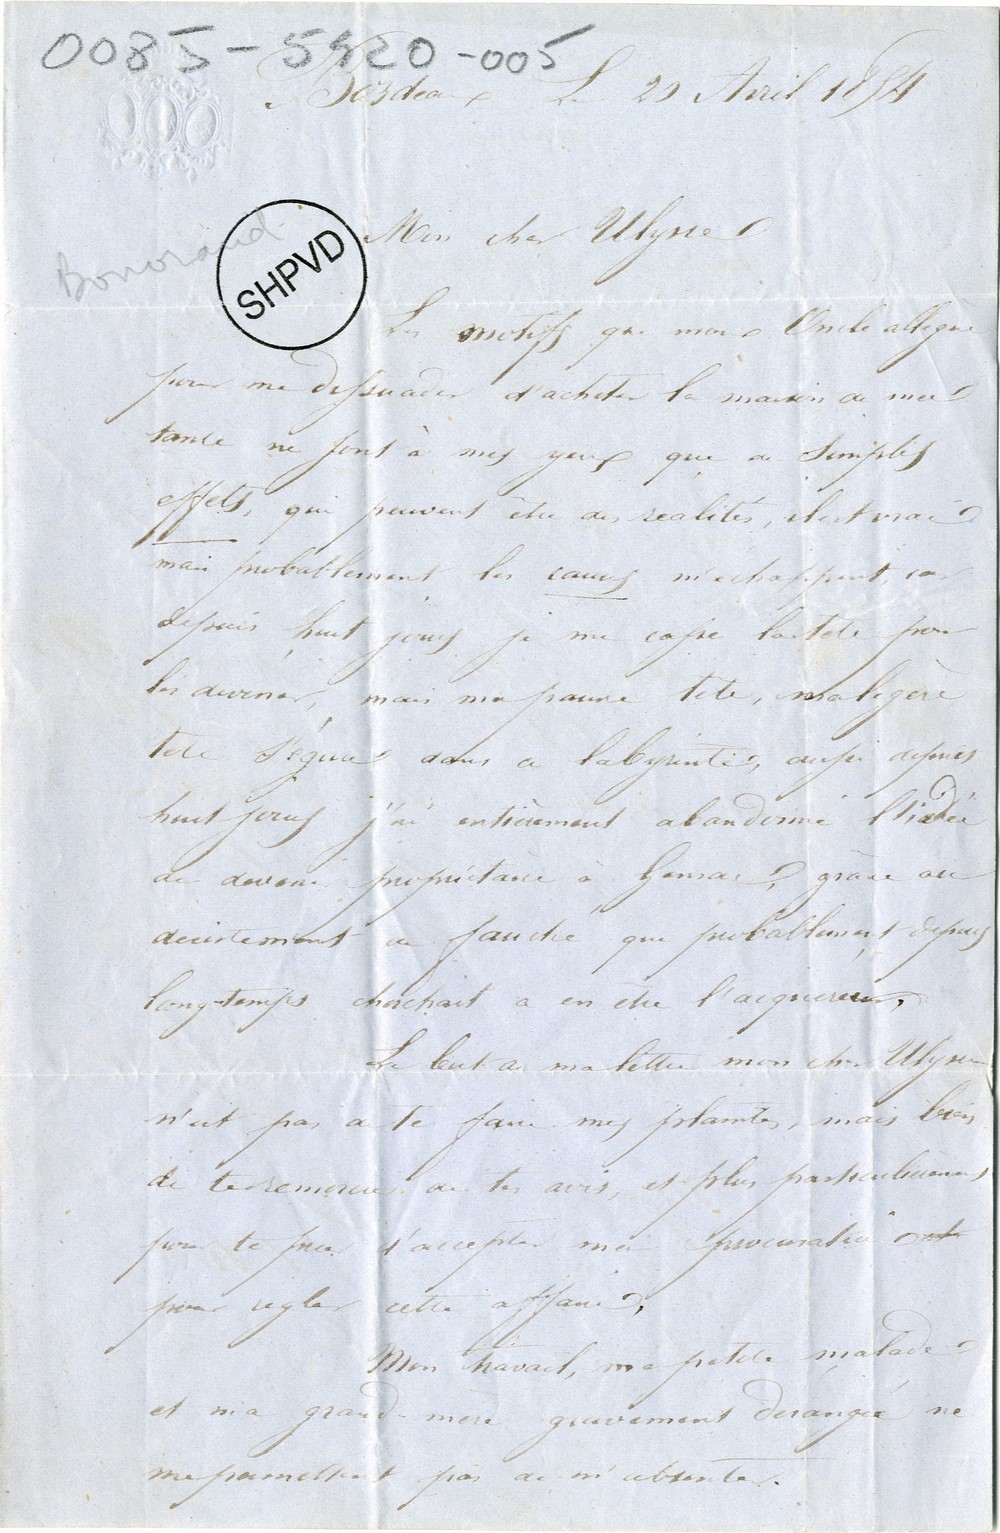 0085-5420-005
Bordeaux Le 20 Avril 1854
Bonoraud
SHPVD
Mon cher Ulysse
Les motifs que mon Oncle allegue
pour me dissuader d'acheter la maison de ma
tante ne sont à mes yeux que de simples
effets, qui peuvent être des realités, il est vrai
mais probablement les causes m'echappent, car
depuis huit jours je me casse la tête pour
les deviner, mais ma pauvre tête, ma légère
tete s'égare dans ce labyrinthe, aussi depuis
huit jours j'ai entièrement abandonné l'idée
de devenir propriétaire à Gensac, grace au
de que probablement depuis
long-temps cherchait a en être l'acquereur,
Le but de ma lettre mon cher Ulysse
n'est pas de te faire mes plaintes, mais bien
de te remercier de tes avis, et plus particulièrement
pour te prier d'accepter ma procuration
pour regler cette affaire,
Mon travail, ma petite malade
et ma grand-mère gravement derangée ne
me permettent pas de m'absenter.